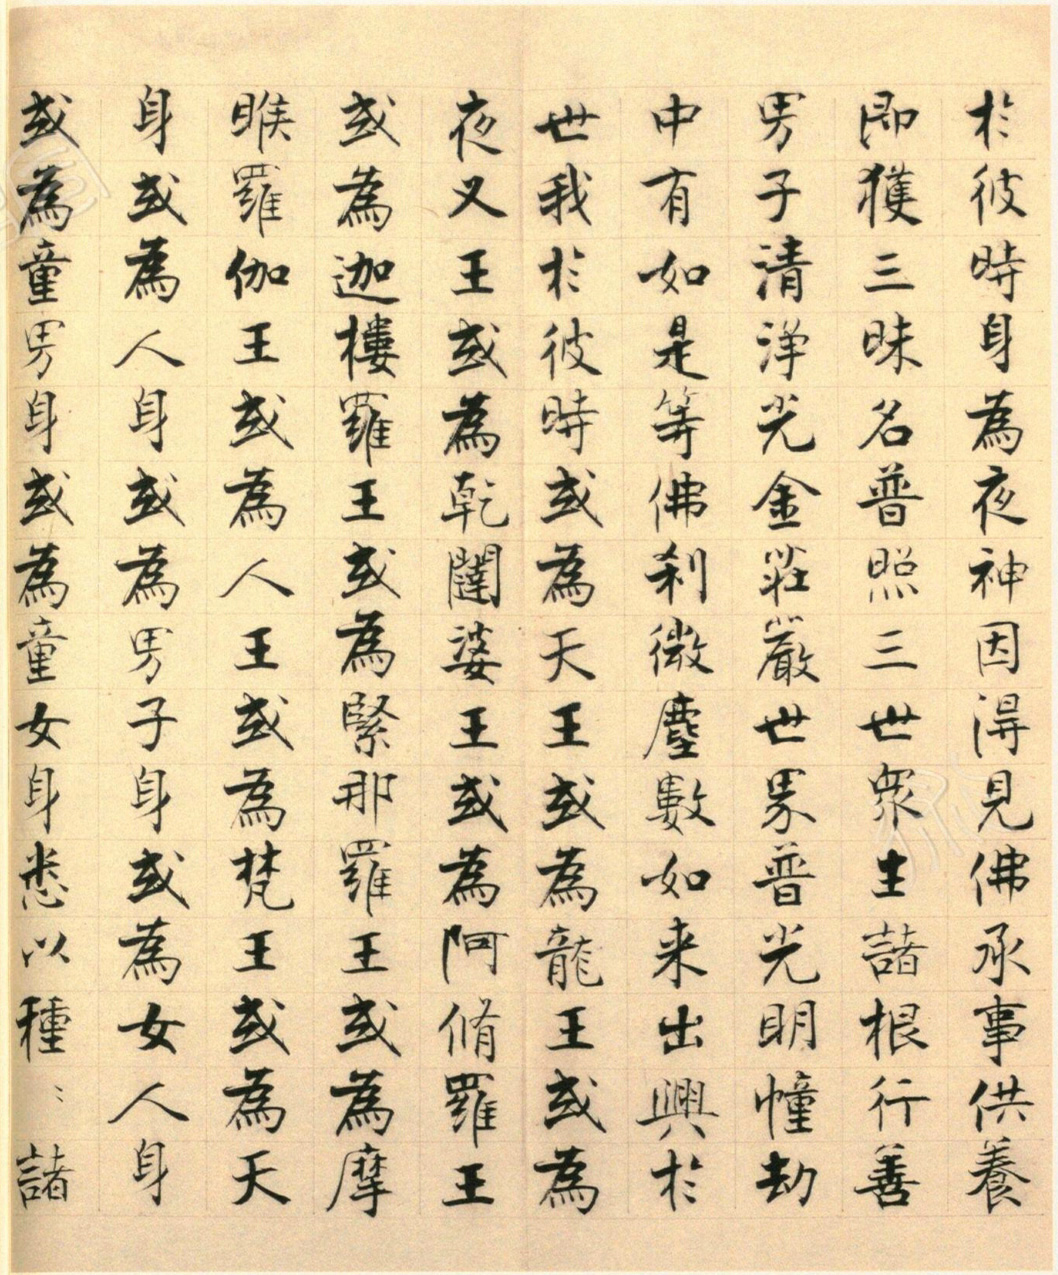 於彼時身為夜神因得見佛承事供養
即獲三昧名普照三世衆生諸根行善
男子清淨光金莊嚴世界普光明幢劫
中有如是等佛刹微塵數如来出興於
世我於彼時或為天王或為龍王或為
夜叉王或為乾闥婆王或為阿脩羅王
或為迦樓羅王或為緊那羅王或為摩
睺羅伽王或為人王或為梵王或為天
身或為人身或為男子身或為女人身
或為童男身或為童女身悉以種〻諸